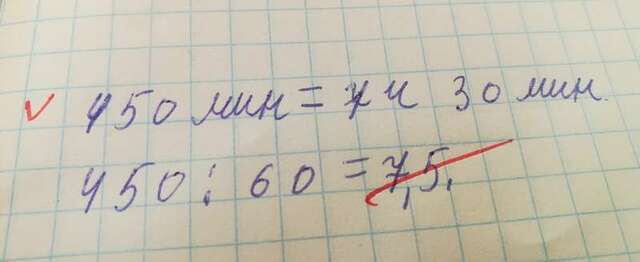 450 мин = 7 ч 30 мин.
450 : 60 = 7,5.